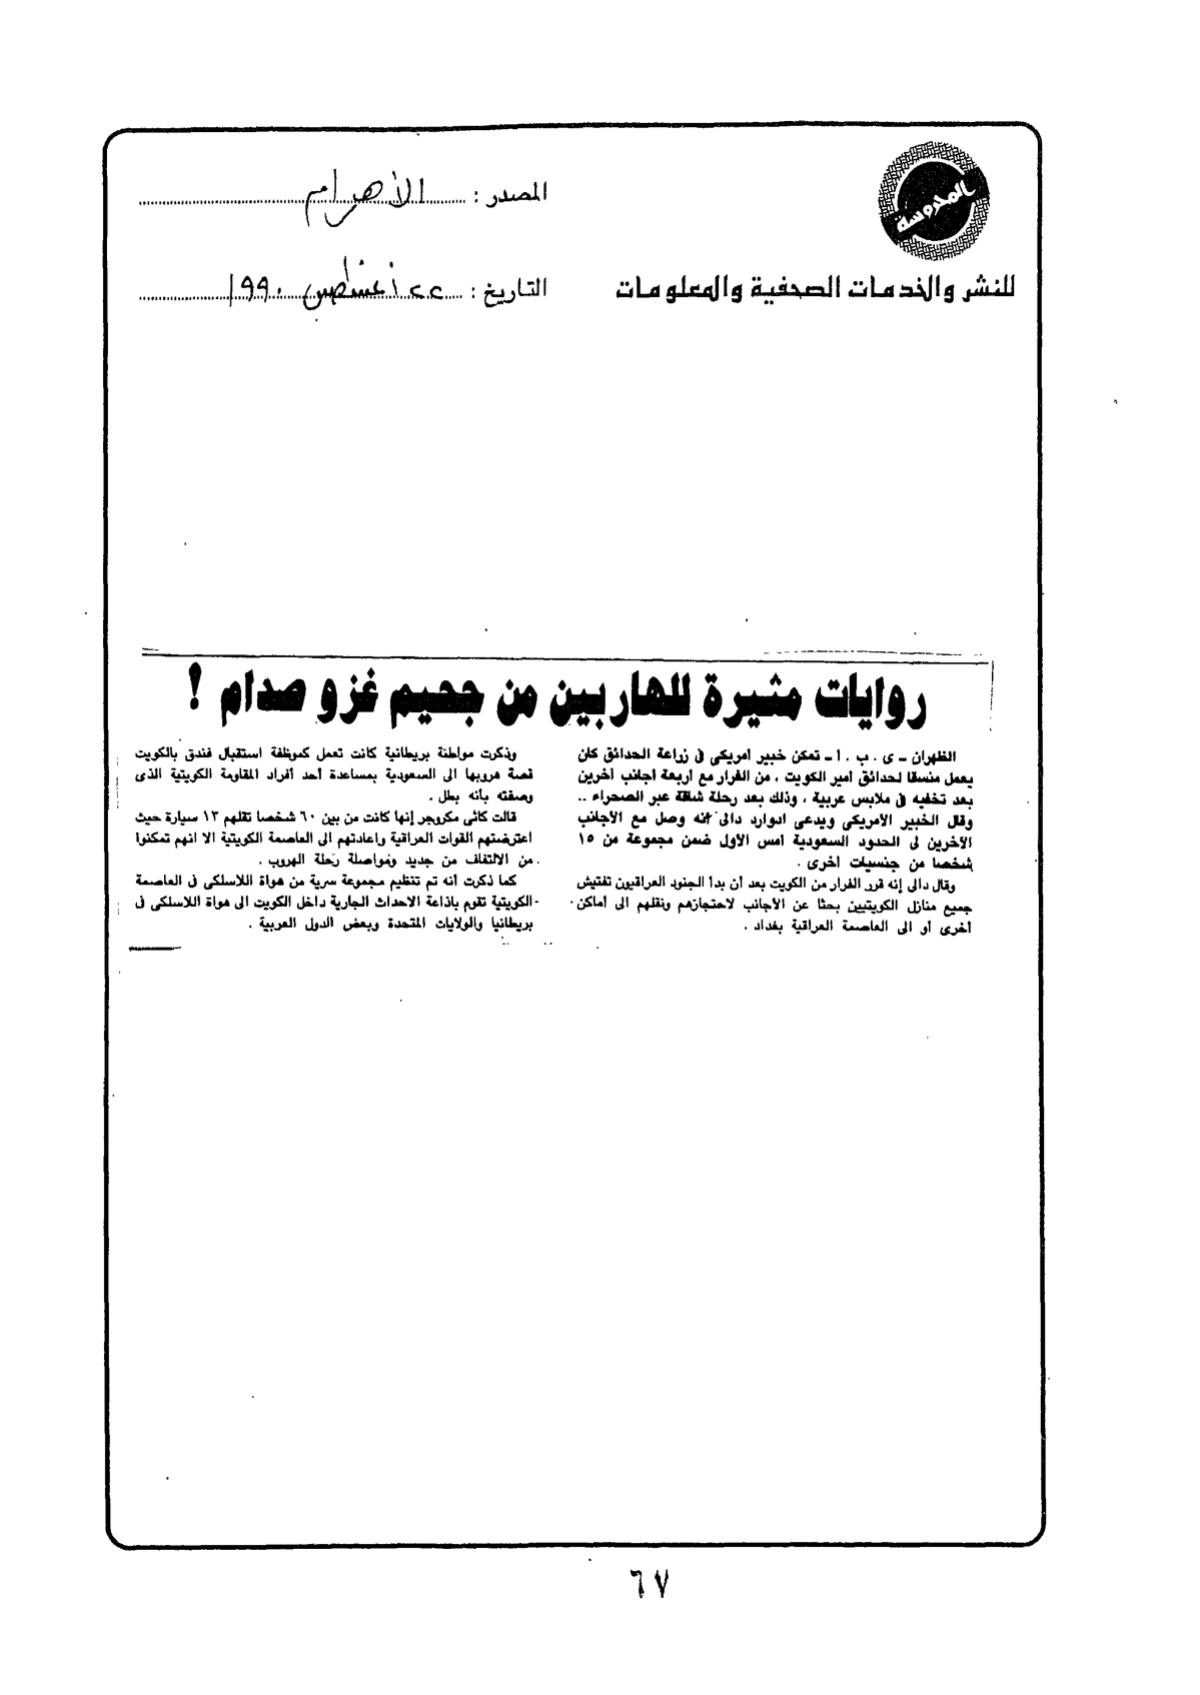 المحروسة
للنشر والخدمات الصحفية والمعلومات
المصدر : الأهرام
التاريخ : ٢٢ أغسطس ١٩٩٠
روايات مثيرة للهاربين من جحيم غزو صدام !
الظهران ـ ى . ب . ا ـ تمكن خبير امريكى فى زراعة الحدائق كان
يعمل منسقا لحدائق امير الكويت ، من الفرار مع اربعة اجانب اخرين
بعد تخفيه فى ملابس عربية ، وذلك بعد رحلة شاقة عبر الصحراء ..
وقال الخبير الأمريكى ويدعى ادوارد دالى انه وصل مع الأجانب
الآخرين لى الحدود السعودية امس الأول ضمن مجموعة من ١٥
شخصا من جنسيات اخرى .
وقال دالى إنه قرر الفرار من الكويت بعد أن بدأ الجنود العراقيون تفتيش
جميع منازل الكويتيين بحثا عن الأجانب لاحتجازهم ونقلهم الى أماكن
أخرى أو الى العاصمة العراقية بغداد .
وذكرت مواطنة بريطانية كانت تعمل كموظفة استقبال فندق بالكويت
قصة هروبها الى السعودية بمساعدة أحد أفراد المقاومة الكويتية الذى
وصفته بأنه بطل .
قالت كاثى مكروجر إنها كانت من بين ٦٠ شخصا تقلهم ١٣ سيارة حيث
اعترضتهم القوات العراقية واعادتهم الى العاصمة الكويتية الا انهم تمكنوا
من الالتفاف من جديد ومواصلة رحلة الهروب .
كما ذكرت أنه تم تنظيم مجموعة سرية من هواة اللاسلكى فى العاصمة
الكويتية تقوم باذاعة الاحداث الجارية داخل الكويت الى هواة اللاسلكى فى
بريطانيا والولايات المتحدة وبعض الدول العربية .
٦٧